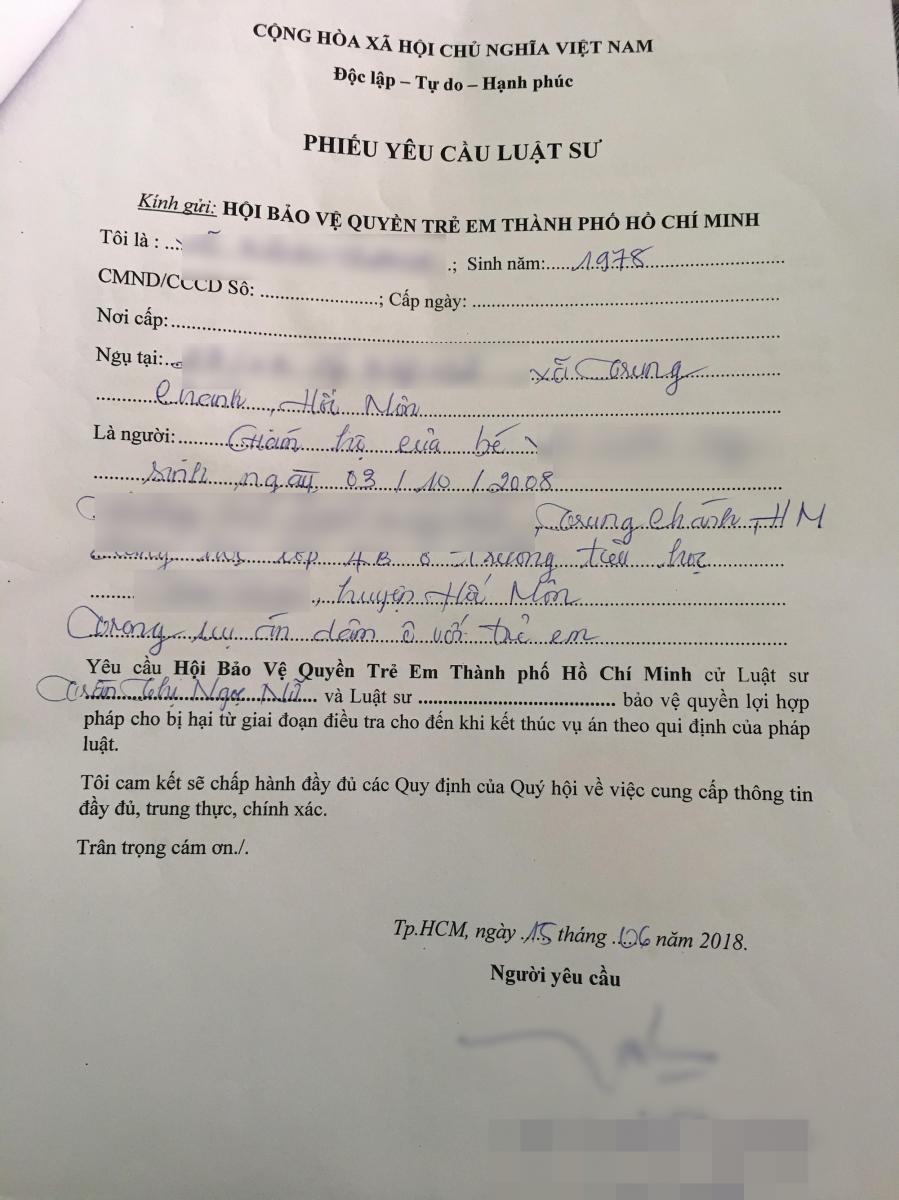 CỘNG HÒA XÃ HỘI CHỦ NGHĨA VIỆT NAM
Độc lập – Tự do – Hạnh phúc
PHIẾU YÊU CẦU LUẬT SƯ
Kính gửi: HỘI BẢO VỆ QUYỀN TRẺ EM THÀNH PHỐ HỒ CHÍ MINH
Tôi là : .......; Sinh năm:....1978
CMND/CCCD Số: ........................; Cấp ngày: ........................
Nơi cấp:........................
Ngụ tại:... xã Trung
Chánh, Hóc Môn
Là người: Giám hộ của bé
sinh ngày 03/10/2008
, Trung Chánh, HM
lớp 4B ở Trường tiểu học
, huyện Hóc Môn
Trong vụ án dâm ô với trẻ em
Yêu cầu Hội Bảo Vệ Quyền Trẻ Em Thành phố Hồ Chí Minh cử Luật sư
Trần Thị Ngọc Nữ và Luật sư ........................ bảo vệ quyền lợi hợp
pháp cho bị hại từ giai đoạn điều tra cho đến khi kết thúc vụ án theo qui định của pháp
luật.
Tôi cam kết sẽ chấp hành đầy đủ các Quy định của Quý hội về việc cung cấp thông tin
đầy đủ, trung thực, chính xác.
Trân trọng cám ơn./.
Tp.HCM, ngày 15 tháng 06 năm 2018.
Người yêu cầu